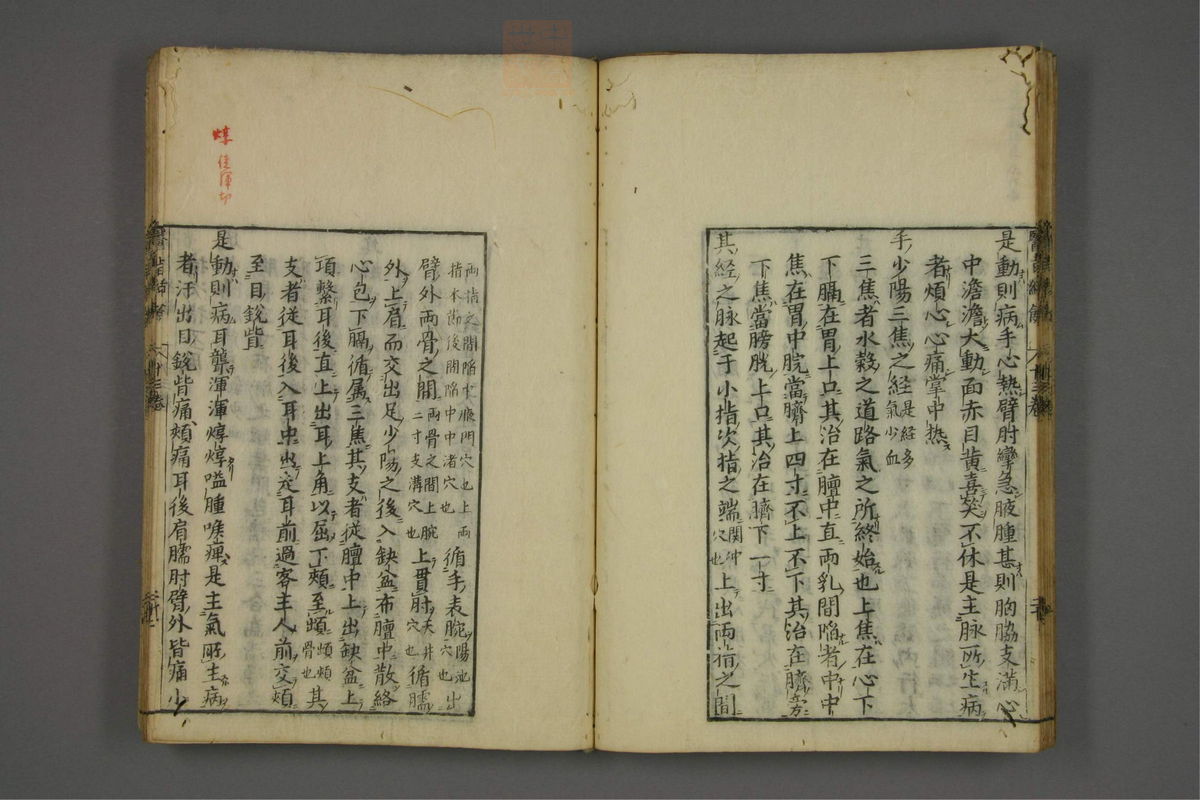 是動則病手心熱臂肘攣急腋腫甚則胸脇支滿心
中澹澹大動面赤目黄喜笑不休是主脉所生病
者煩心心痛掌中热
手少陽三焦之経是経多氣少血
三焦者水穀之道路氣之所終始也上焦在心下
下膈在胃上口其治在膻中直両乳間陥者中中
焦在胃中脘當臍上四寸不上不下其治在臍旁
下焦當膀胱上口其治在臍下一寸
其経之脉起于小指次指之端関冲穴也上出両指之間
両指之間陥中液門穴也上両指本節後間陥中中渚穴也循手表腕陽池穴也出
臂外両骨之間両骨之間上腕二寸支溝穴也上貫肘天井穴也循臑
外上肩而交出足少陽之後入缺盆布膻中散絡
心包下膈循属三焦其支者従膻中上出缺盆上
項繋耳後直上出耳上角以屈下頬至䪼䪼頬骨也其
支者従耳後入耳中出走耳前過客主人前交頬
至目鋭眥
是動則病耳聾渾渾焞焞嗌腫喉痺是主氣所生病
者汗出目鋭眥痛頬痛耳後肩臑肘臂外皆痛小
焞